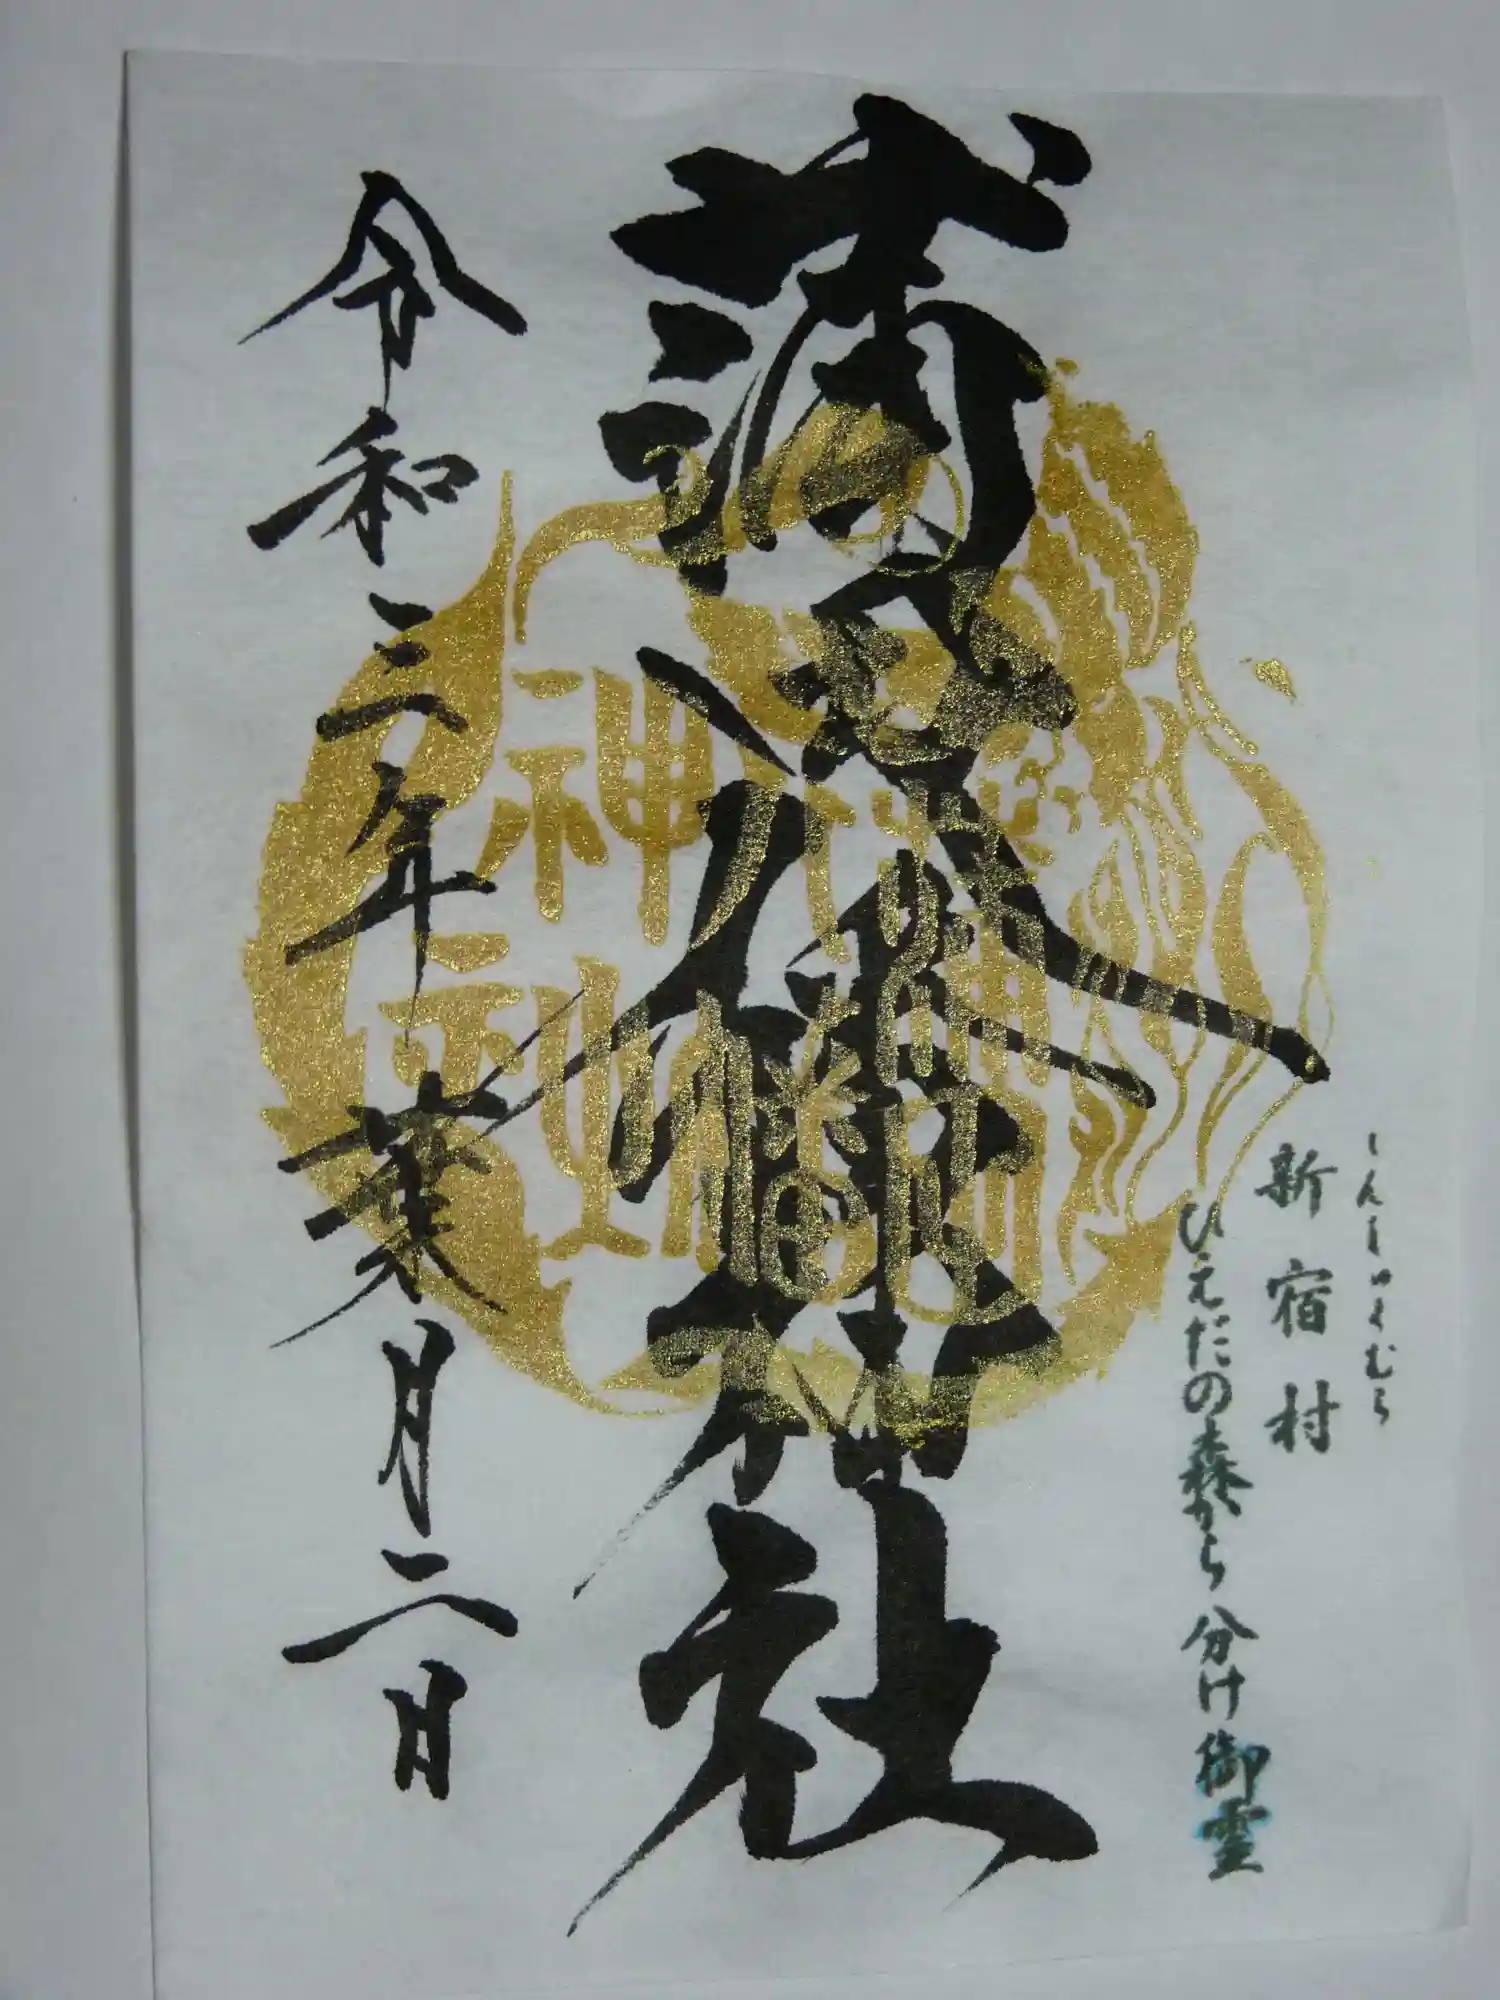 しんしゅくむら
新宿村
ひえだの森から分け御霊
蒲田八幡神社
蒲田八幡神社
令和三年葉月二日